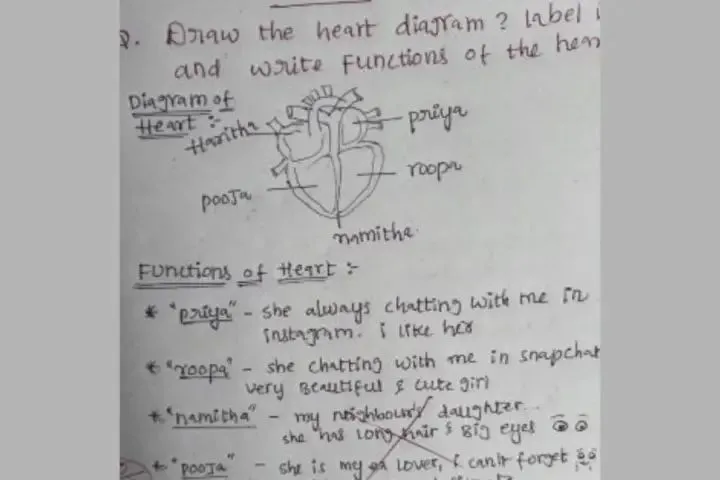 Q. Draw the heart diagram? label i
and write Functions of the hear
Diagram of
Heart :-
Haritha
priya
roopa
pooja
namitha
Functions of Heart :-
* "priya" - she always chatting with me in
instagram. i like her
* "roopa" - she chatting with me in snapchat
very Beautiful & cute girl
* "namitha" - my neighbour's daughter..
she has long hair & Big eyes
* "pooja" - she is my ex lover, i can't forget